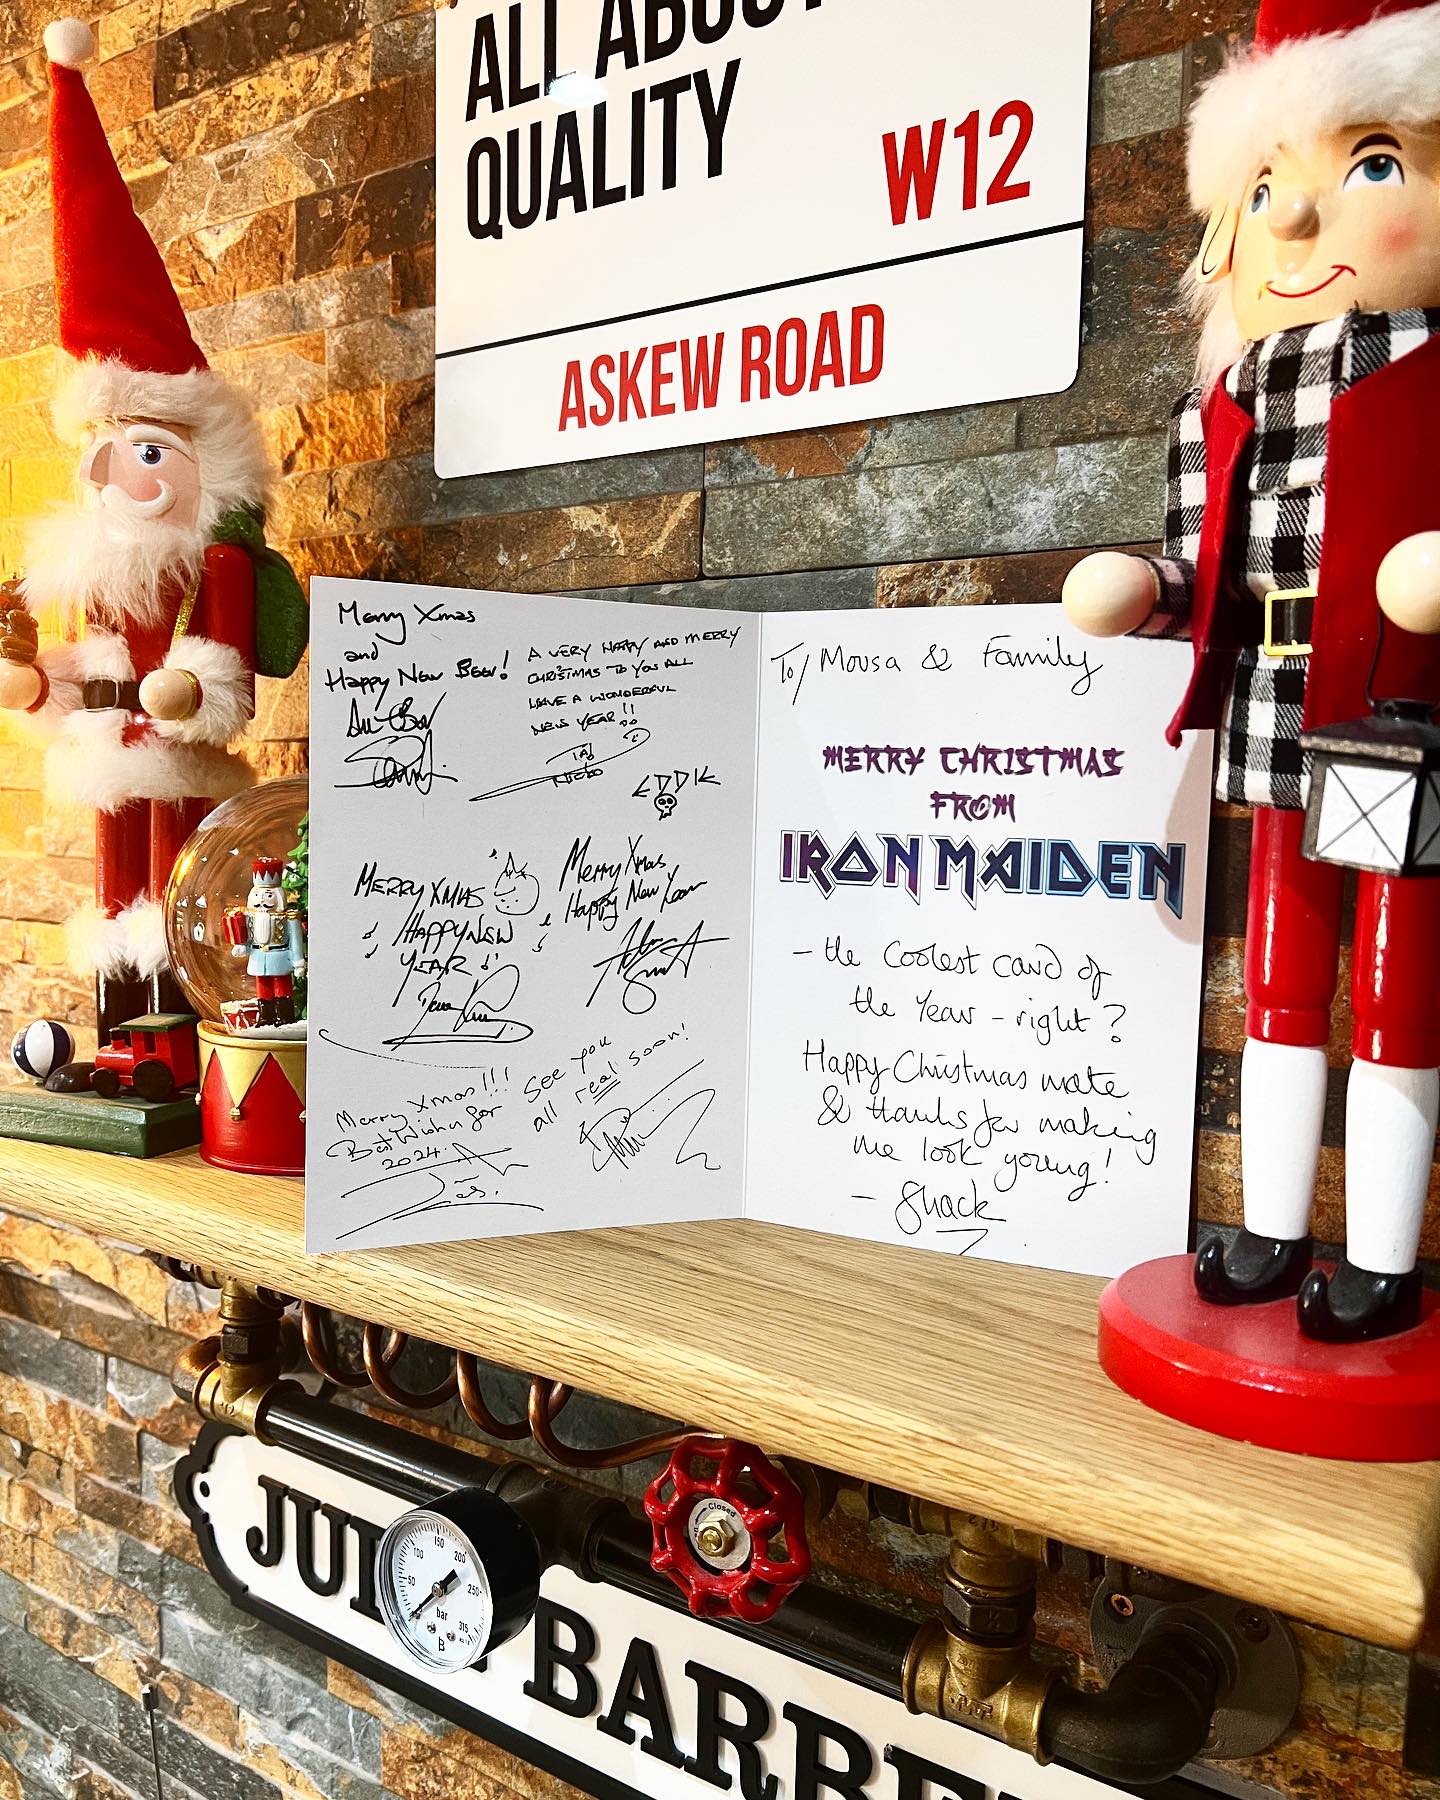 ALL ABOUT
QUALITY
W12
ASKEW ROAD
Merry Xmas
and
Happy New Beer!
A VERY HAPPY AND MERRY
CHRISTMAS TO YOU ALL
HAVE A WONDERFUL
NEW YEAR!!
Nicko
EDDIE
MERRY XMAS
HAPPY NEW
YEAR
Merry Xmas
Happy New Year
Merry Xmas!!!
Best Wishes for
2024.
See you
all real soon!
To/ Mousa & Family
MERRY CHRISTMAS
FROM
IRON MAIDEN
- the Coolest card of
the Year - right?
Happy Christmas mate
& thanks for making
me look young!
- Shack
Closed
50 100 150 200 250 315
bar
JU BARBE